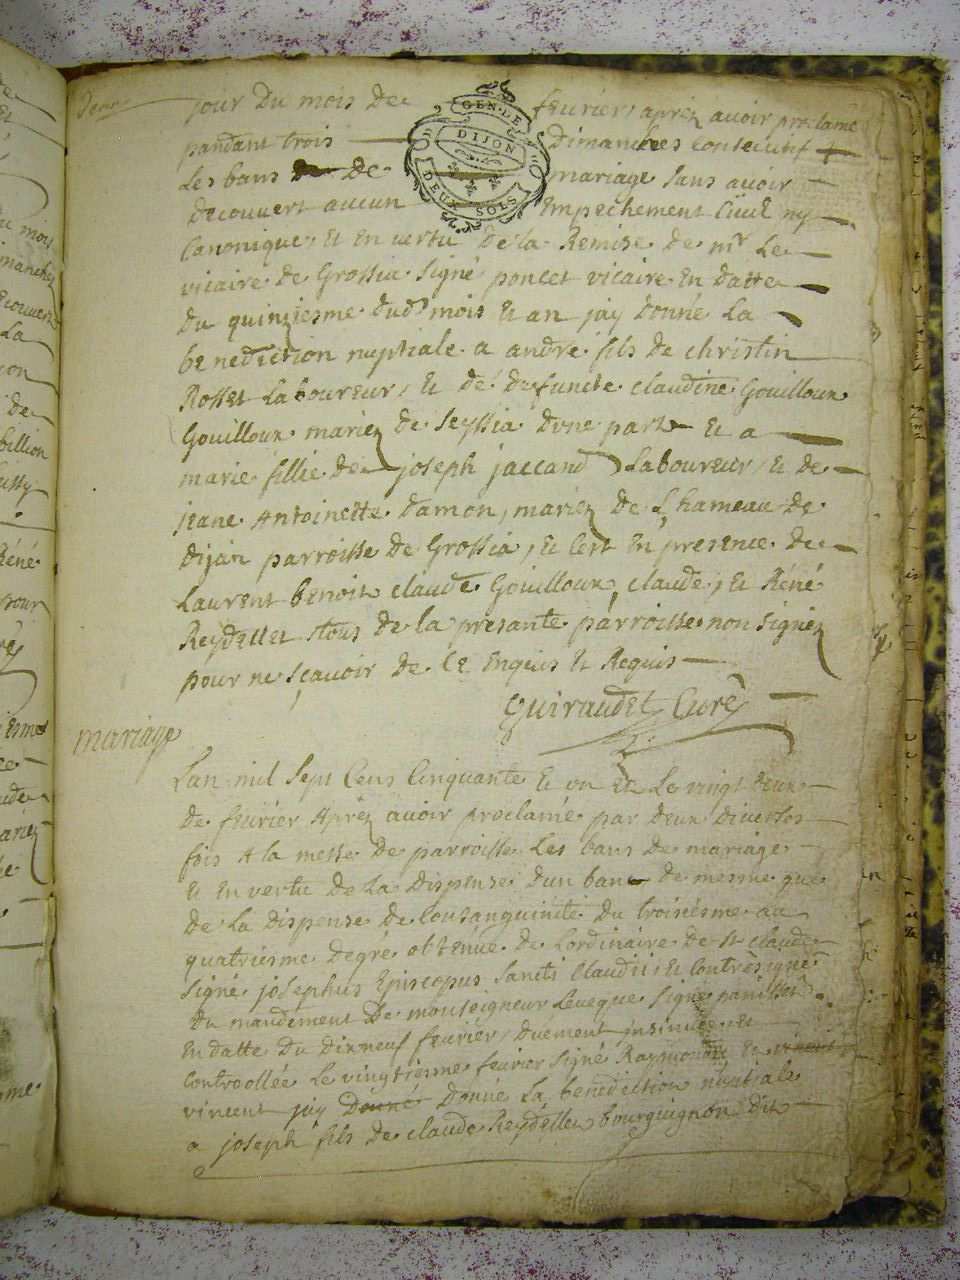 jour du mois de fevrier, aprez avoir proclamé
pandant trois Dimanches consecutif
Les bans de mariage sans avoir
decouvert aucun Empechement Civil ny
Canonique, Et En vertu de la Remise de mr Le
vicaire de Grossia signé poncet vicaire En datte
du quinziesme dud. mois Et an jay donné La
benediction nuptiale a andré fils de christin
Rosset Laboureur, Et de defuncte claudine Gouilloux
Gouilloux mariez de Seyssia dvne part Et a
marie fillie de joseph jaccand Laboureur, Et de
jeane Antoinette damon, mariez de Lhameau de
dijan parroisse de Grossia, Et Cest En presence de
Laurent benoit claude Gouilloux, claude, Et Réné
Reydellet tous de la presante parroisse non signez
pour ne sçavoir de Ce Enquis Et Requis
Guiraudet Curé
mariage
Lan mil sept Cens Cinquante Et un Et Le vingt deux
de fevrier Aprez avoir proclamé par deux diverses
fois A la messe de parroisse Les bans de mariage
Et En vertu de La dispense dun banc de mesme que
de La dispense de Consanguinité du troisiesme au
quatriesme degré obtenüe de Lordinaire de st claude
signé josephus Episcopus Sancti Claudii, Et Contresigné
du mandement de monseigneur Leveque signé
En datte du dixneuf fevrier, duement insinuée Et
Controollée Le vingtiesme fevrier signé Raymondy Et
vincent jay donné donné La benediction nuptiale
a joseph fils de claude Reydellet bourguignon dit
GEN. DE
DIJON
DEUX SOLS